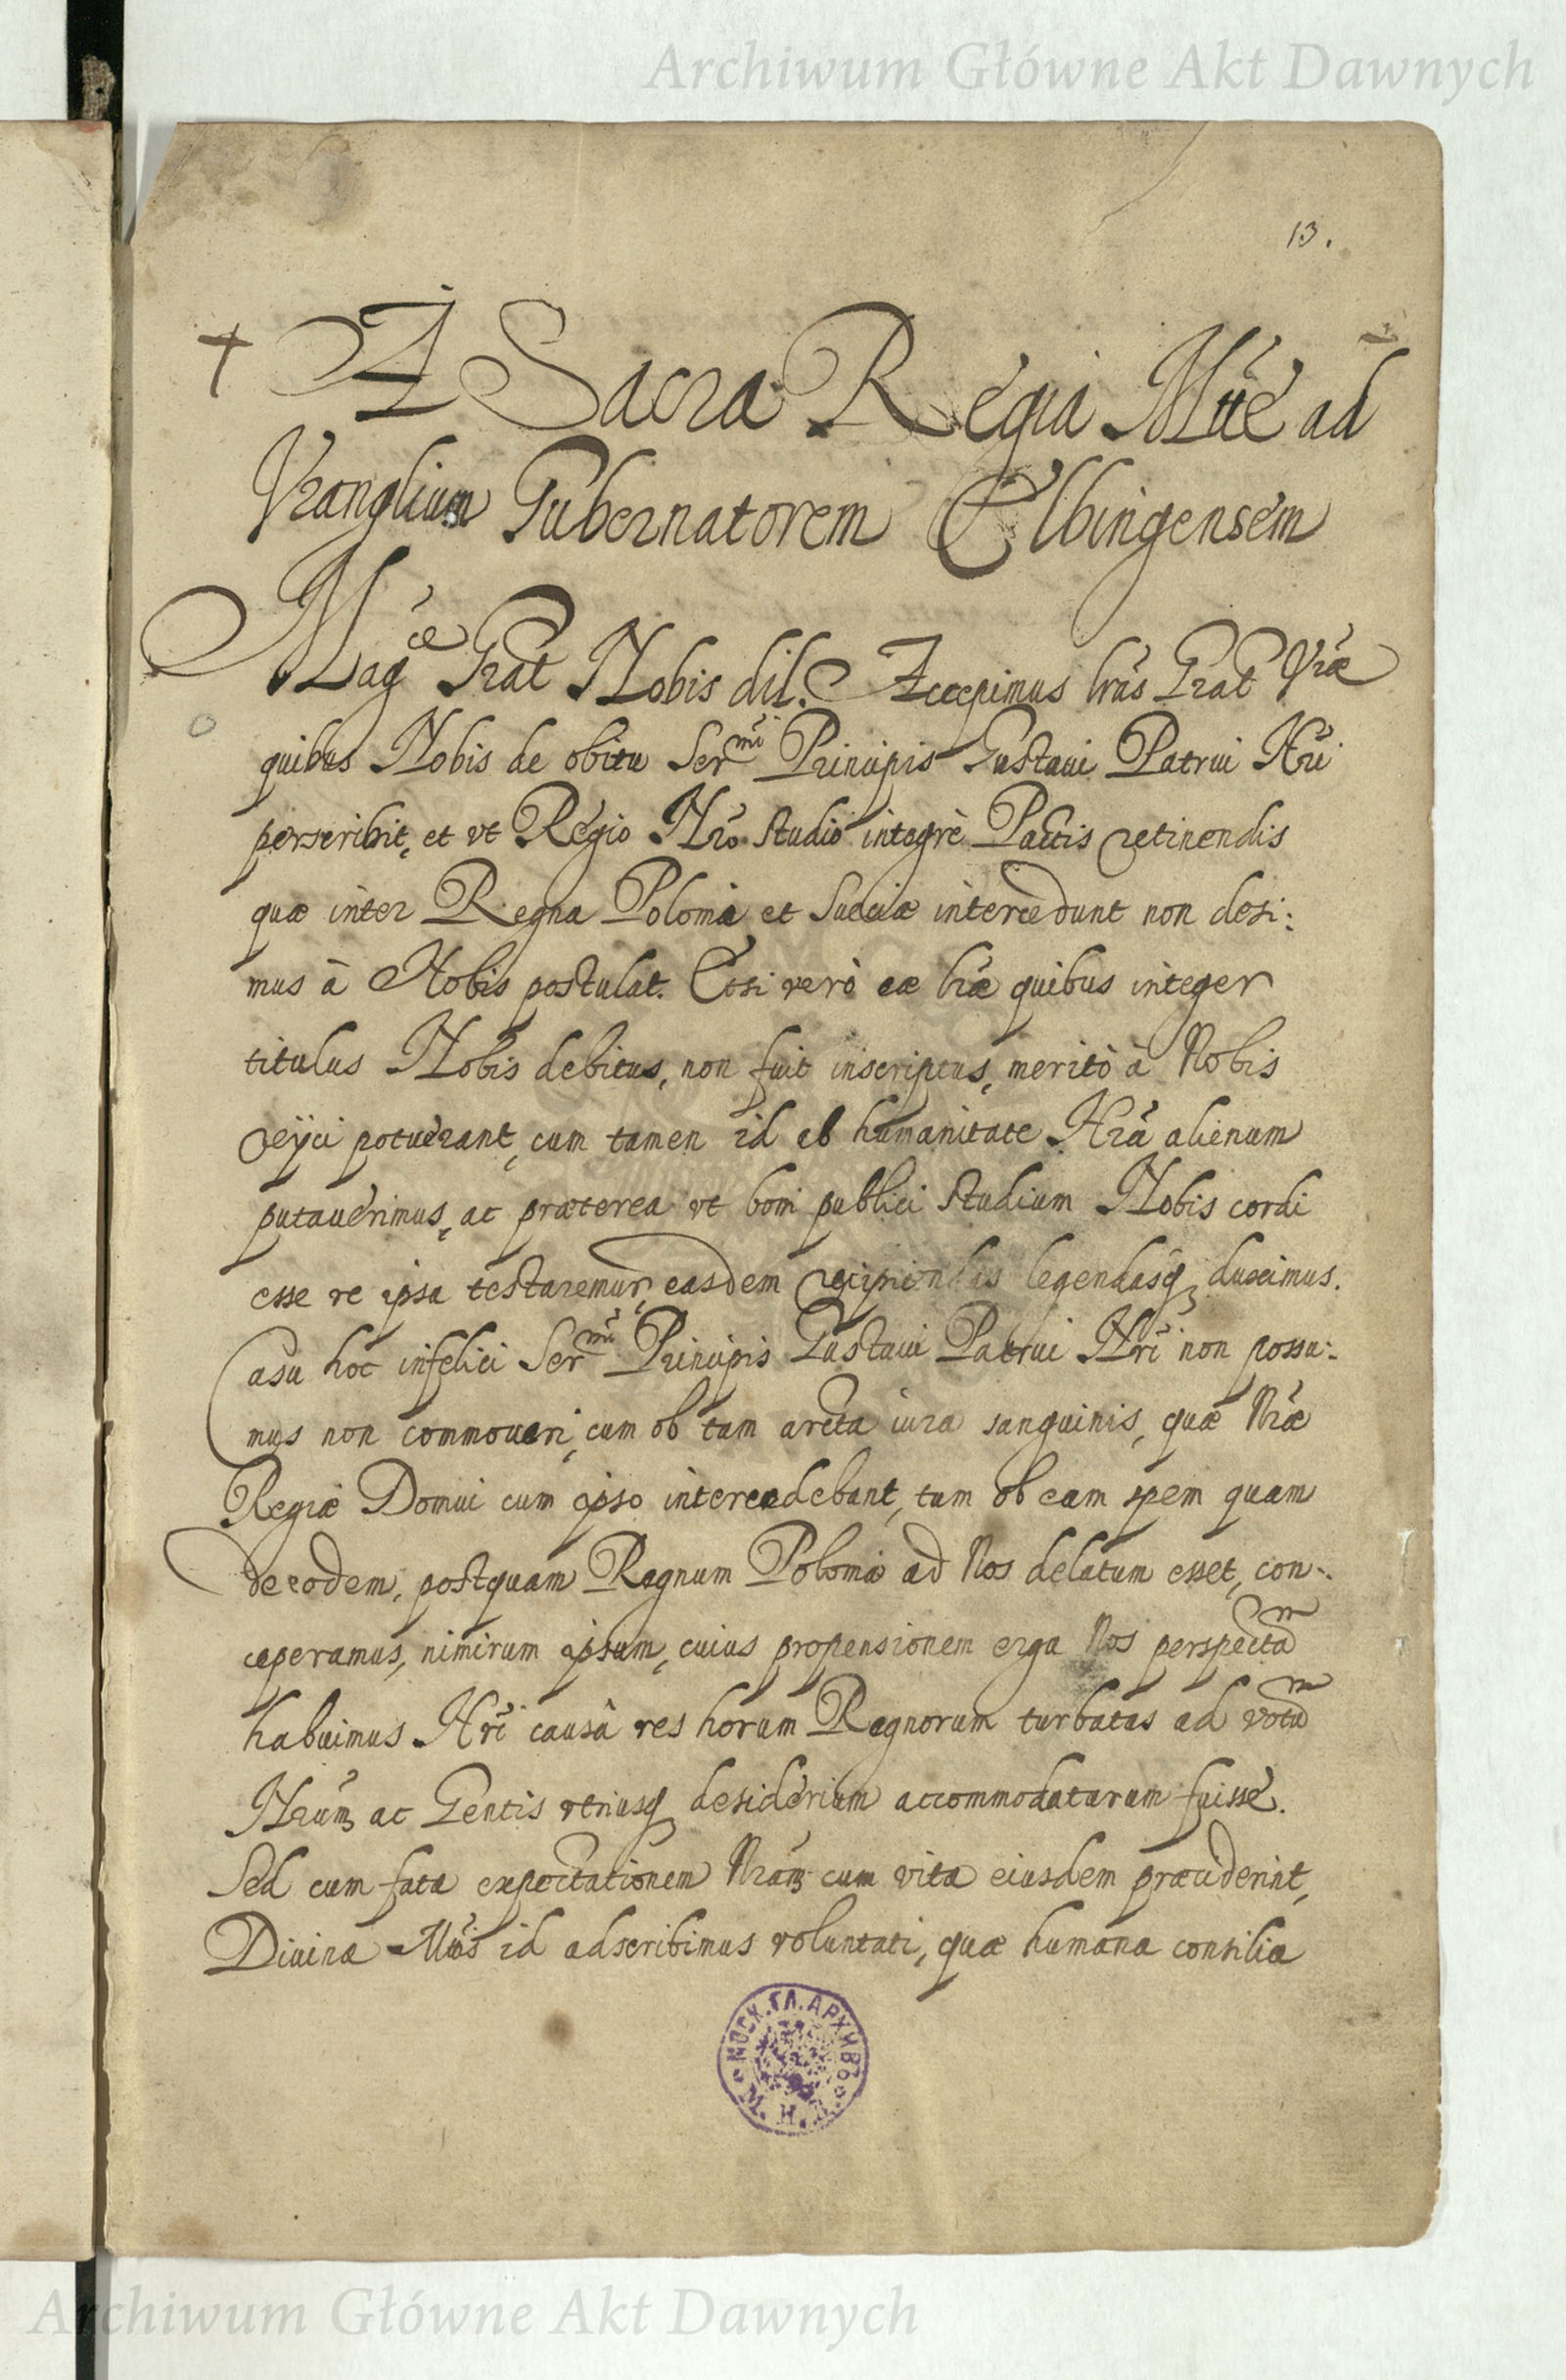 Archiwum Główne Akt Dawnych
13.
A Sacra Regia Mtte ad
Vranglium Gubernatorem Elbingensem
Magce Grat Nobis dil. Accepimus lras Grat Vrae
quibus Nobis de obitu Sermi Principis Gustaui Patrui Nri
perscribit, et vt Regio Nro studio integrè Pactis retinendis
quæ inter Regna Poloniæ et Sueciæ intercedunt non desi:
mus à Nobis postulat. Etsi verò eæ lræ quibus integer
titulus Nobis debitus, non fuit inscriptus, meritò à Nobis
reijci potuerant, cum tamen id ab humanitate Nrâ alienum
putauerimus, ac præterea vt boni publici studium Nobis cordi
esse re ipsa testaremur, easdem recipiendas legendasq3 duximus.
Casu hoc infelici Sermi Principis Gustaui Patrui Nri non possu:
mus non commoueri, cum ob tam arcta iura sanguinis, quæ Nræ
Regiæ Domui cum ipso intercedebant, tum ob eam spem quam
de eodem, postquam Regnum Poloniæ ad Nos delatum esset, con:
ceperamus, nimirum ipsum, cuius propensionem erga Nos perspectam
habuimus Nri causâ res horum Regnorum turbatas ad votum
Nrum ac Gentis vtriusq desiderium accommodaturum fuisse.
Sed cum fata expectationem Nram cum vita eiusdem præciderint,
Diuinæ Mtis id adscribimus voluntati, quæ humana consilia
МОСК. ГЛ. АРХИВЪ
М. И. Д.
Archiwum Główne Akt Dawnych